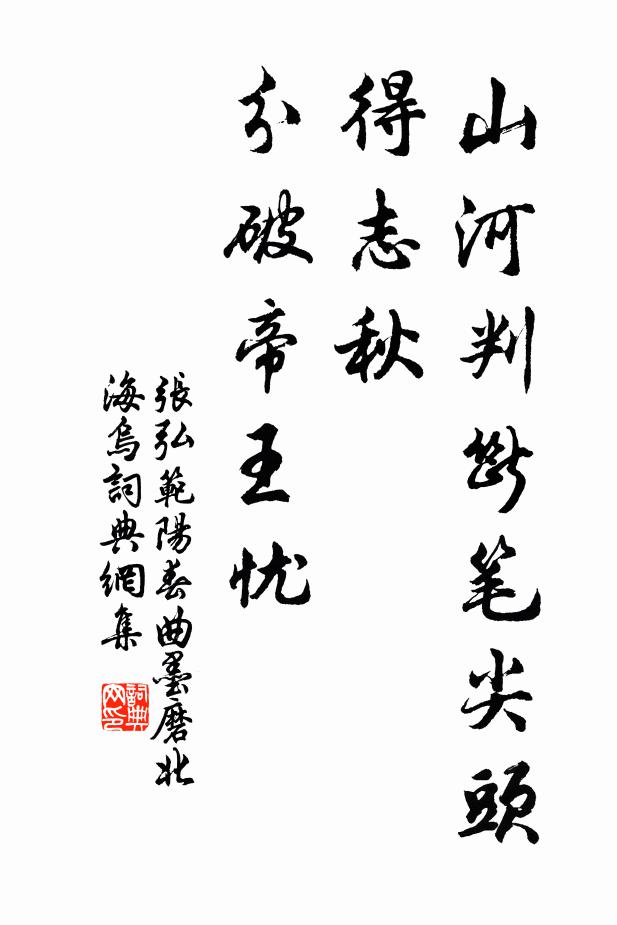 山河判斷笔尖頭
得志秋
分破帝王忧
張弘範陽春曲墨磨北
海烏詞典網集
詞典
网印